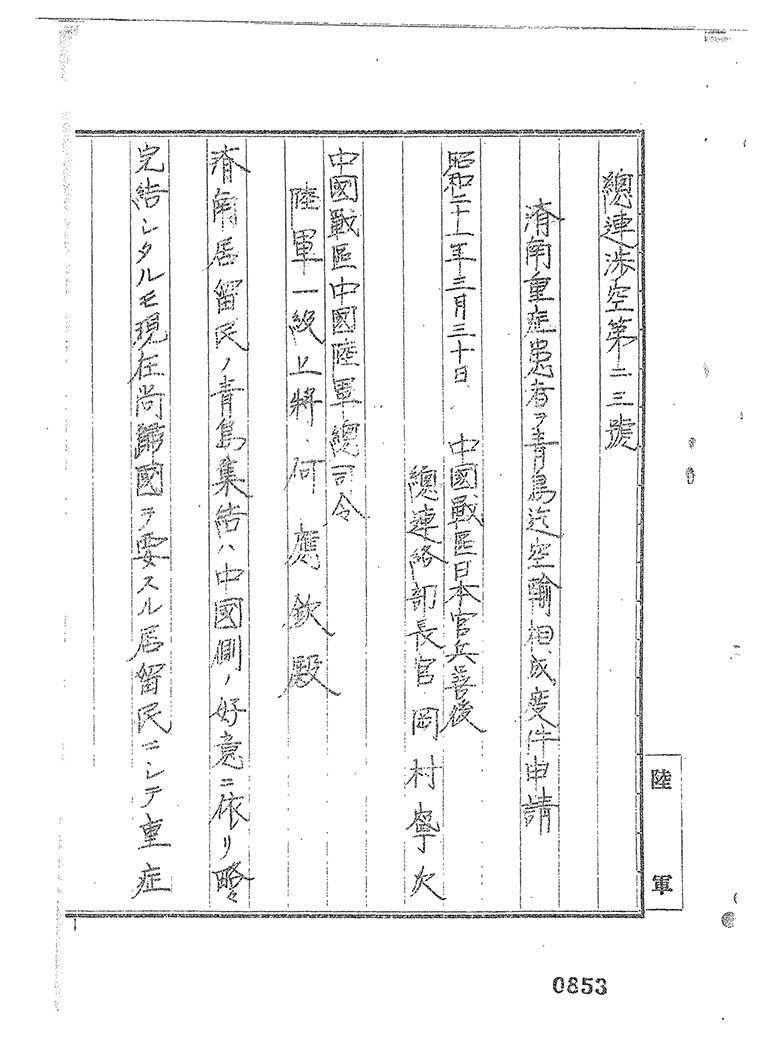 總連涉空第二三號
濟南重症患者ヲ青島迄空輸相成度件申請
昭和二十一年三月三十日
中國戰區日本官兵善後
總連絡部長官 岡村寧次
中國戰區中國陸軍總司令
陸軍一級上將 何應欽殿
濟南居留民ノ青島集結ハ中國側ノ好意ニ依リ略々
完結シタルモ現在尚歸國ヲ要スル居留民ニシテ重症
陸軍
0853